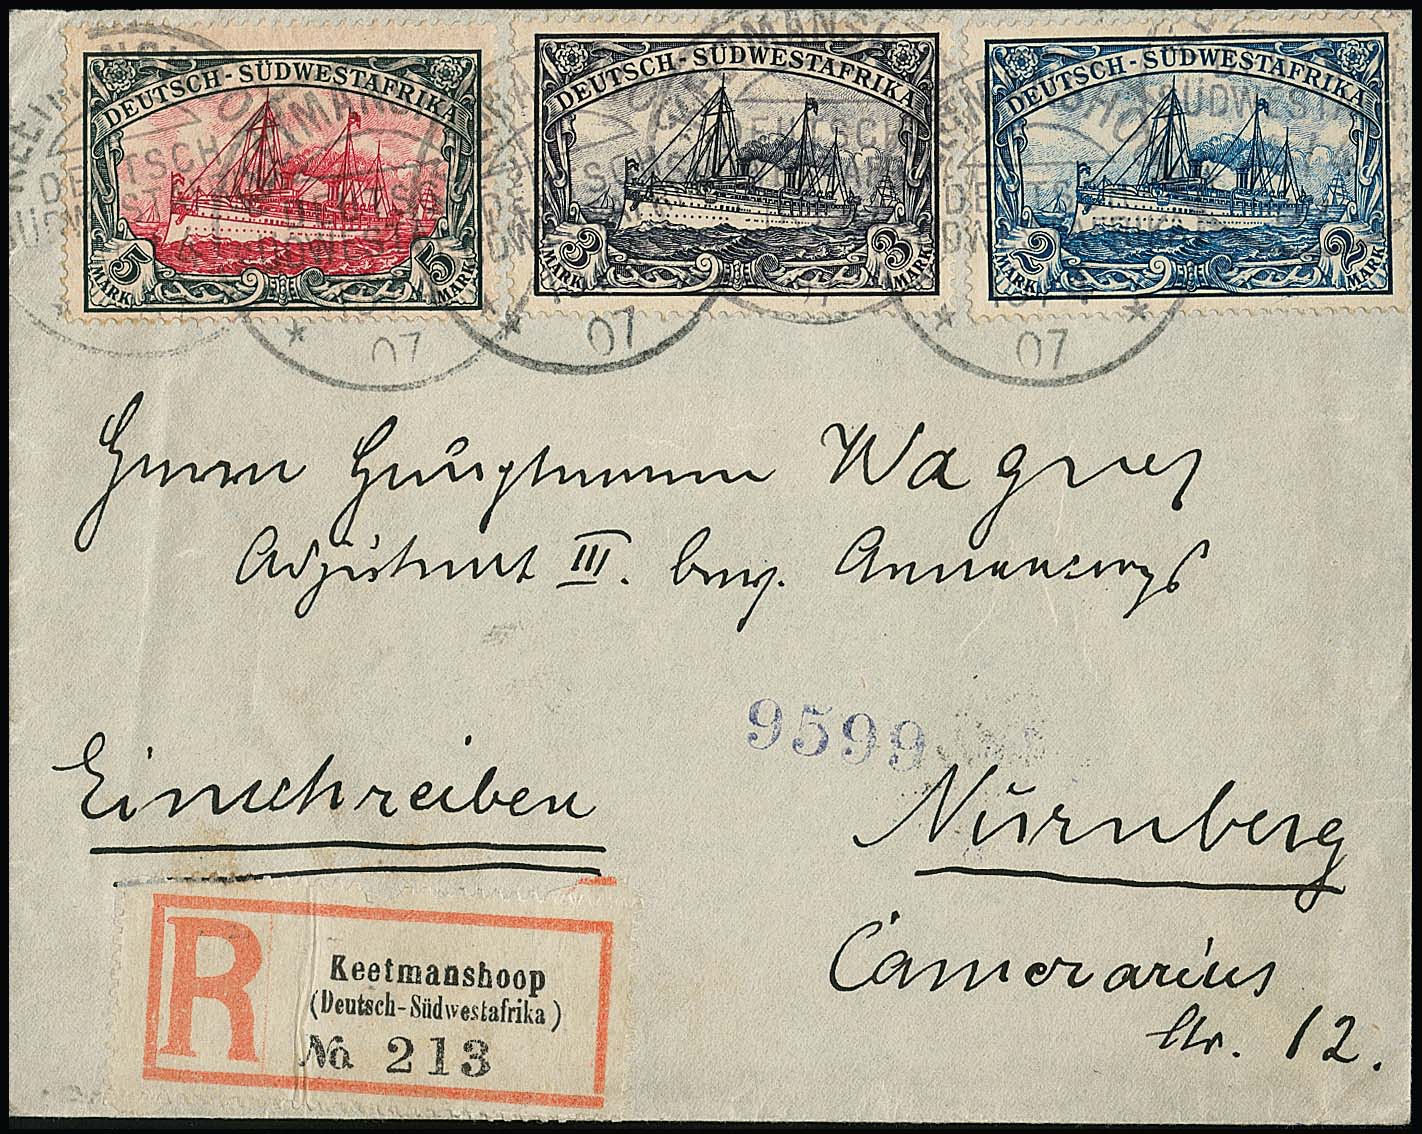 DEUTSCH-SÜDWESTAFRIKA
5 MARK 5 MARK
DEUTSCH-SÜDWESTAFRIKA
3 MARK 3 MARK
DEUTSCH-SÜDWESTAFRIKA
2 MARK 2 MARK
KEETMANSHOOP
DEUTSCH
SÜDWESTAFRIKA
* 07
* 07
* 07 *
Herrn Hauptmann Wagner
Adjutant III. bay. Armeecorps
9599
Einschreiben
Nürnberg
Camerarius
Str. 12.
R
Keetmanshoop
(Deutsch-Südwestafrika)
No 213